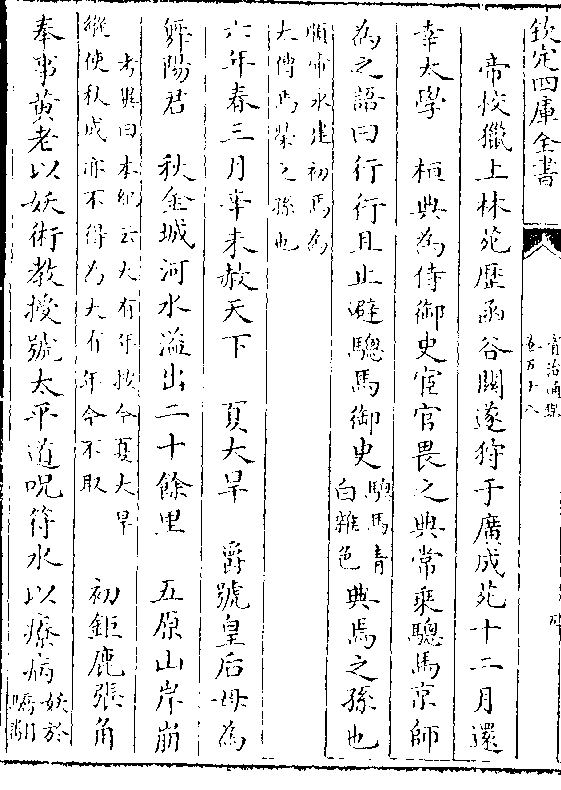 欽定四庫全書
資治通鑑
卷五十八
帝校獵上林苑歷函谷關遂狩于廣成苑十二月還
幸太學　桓典為侍御史宦官畏之典常乘驄馬京師
為之語曰行行且止避驄馬御史驄馬青白雜色典焉之孫也
順帝永建初焉為
太傅焉榮之孫也
六年春三月辛未赦天下　夏大旱　爵號皇后母為
舞陽君　秋金城河水溢出二十餘里　五原山岸崩
考異曰本紀云大有年按今夏大旱
縱使秋成亦不得為大有年今不取
初鉅鹿張角
奉事黃老以妖術教授號太平道呪符水以療病妖於